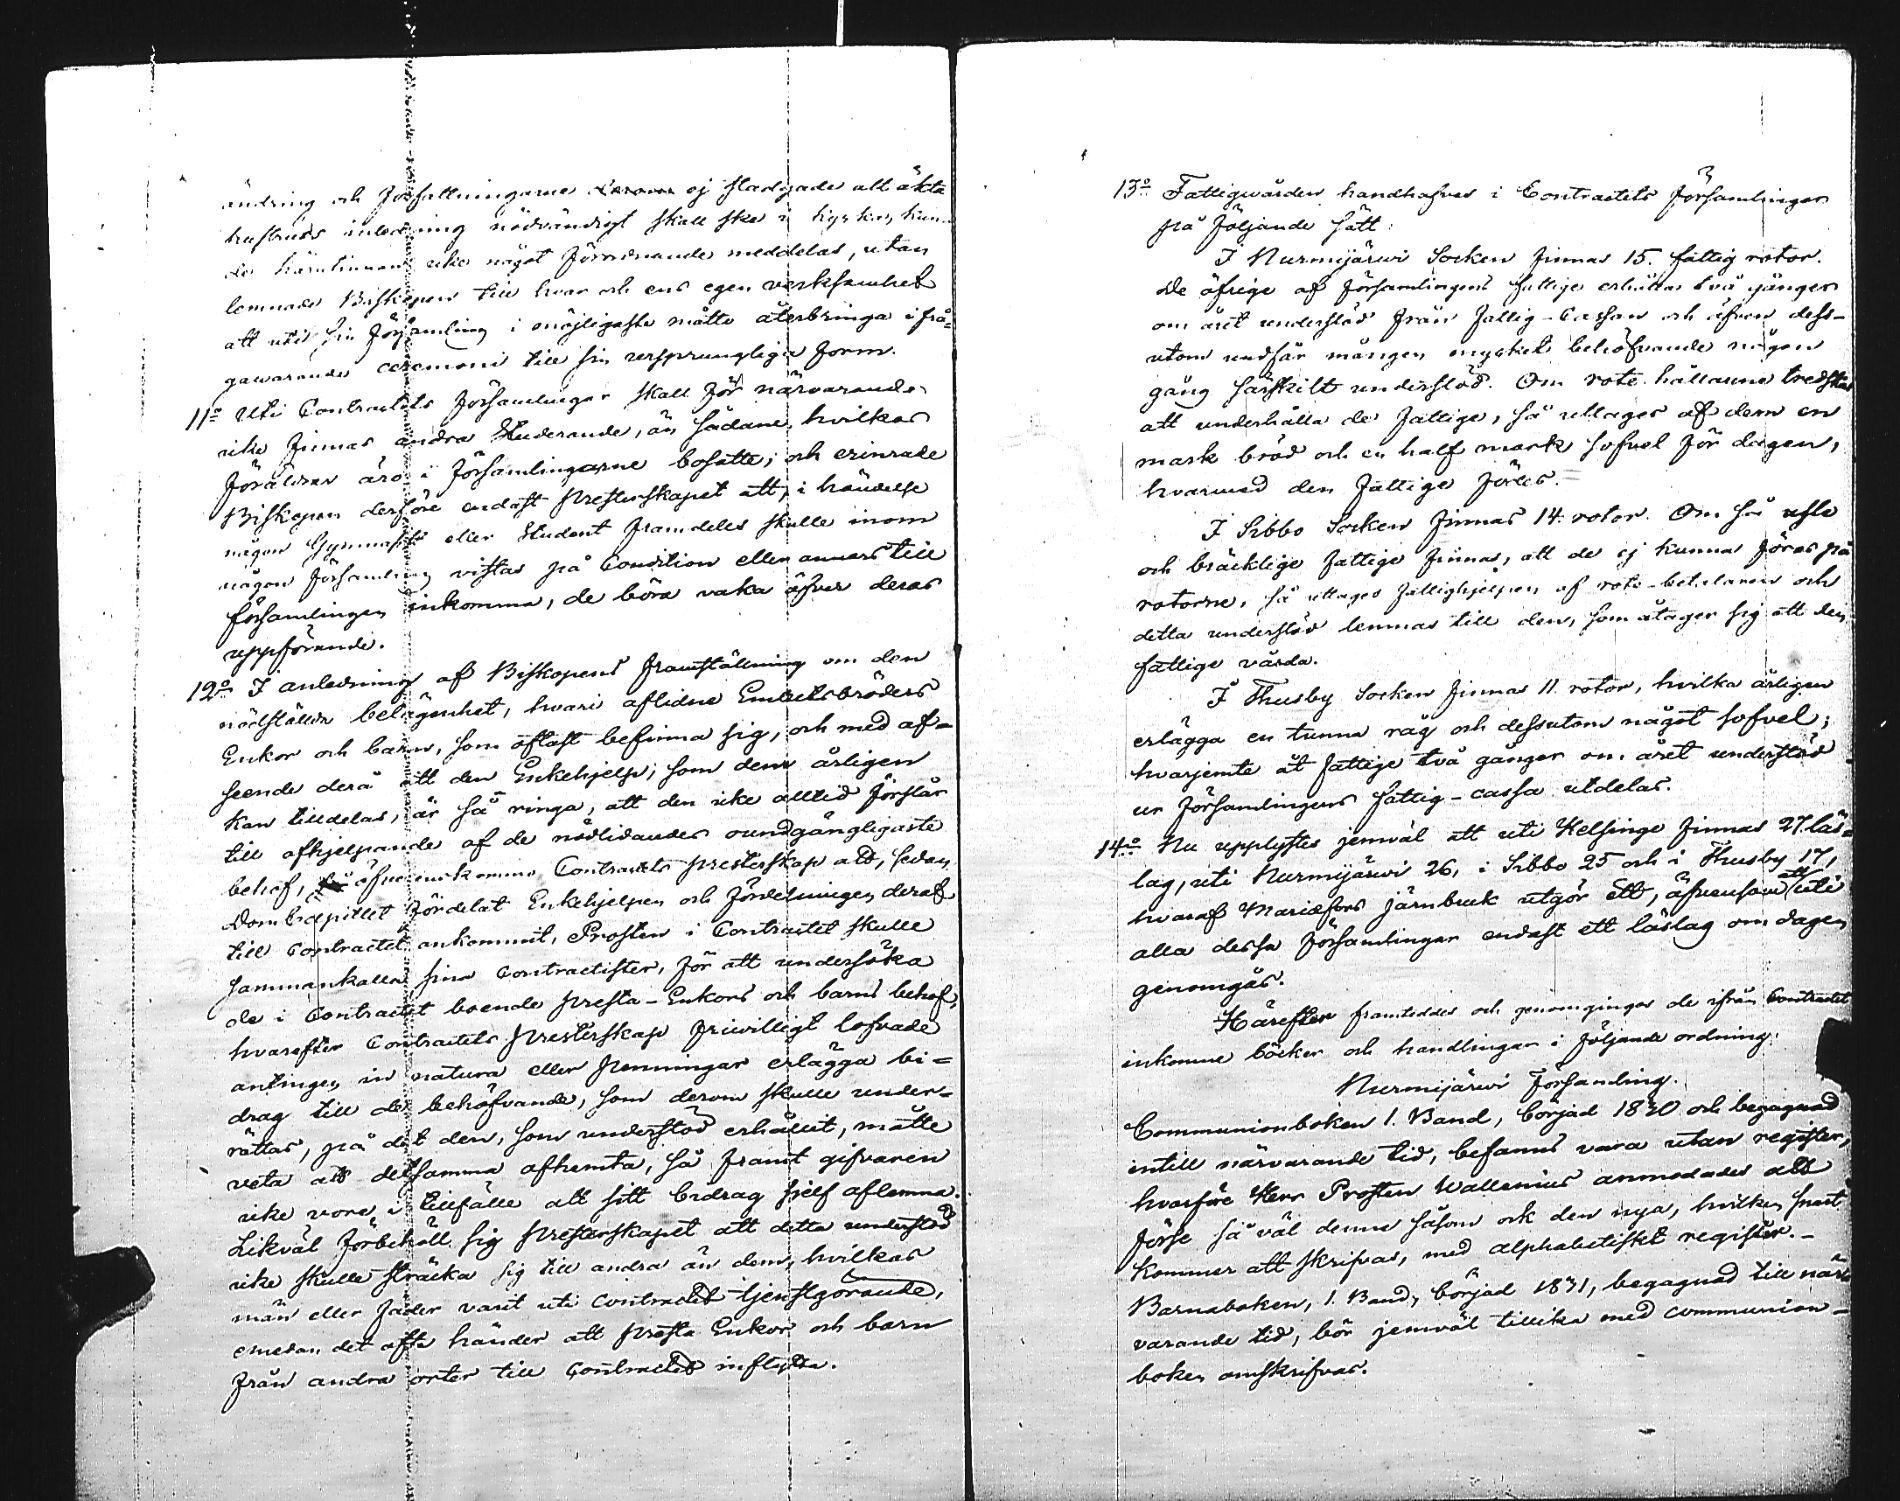 ändring och författningarne ej stadgade att äkta
hustrurs inledning nödvändigt skall ske i kyrkan, kun-
de härutinnan icke något förordnande meddelas, utan
lemnade Biskopen till hvar och ens egen verksamhet
att uti sin församling i möjligaste måtto återbringa ifrå-
gawarande ceremoni till sin ursprungliga form.
11:o Uti Contractets församlingar skall för närvarande
icke finnas andra Studerande, än sådane, hvilkas
föräldrar äro i församlingarne bosatte; och erinrade
Biskopen derföre endast Presterskapet att, i händelse
någon Gymnasist eller Student framdeles skulle inom
någon församling vistas på Condition eller annars till
församlingen inkomma, de böra vaka öfver deras
uppförande.
12:o I anledning af Biskopens framställning om den
nödställda belägenhet, hvari aflidne Embetsbröders
Enkor och barn, som oftast befinna sig, och med af-
seende derå att den Enkehjelp, som dem årligen
kan tilldelas, är så ringa, att den icke alltid förslår
till afhjelpande af de nödlidandes oundgängligaste
behof, öfverenskommo Contractets presterskap att, sedan
DomCapitlet fördelat Enkehjelpen och fördelningen deraf
till Contractet ankommit, Prosten i Contractet skulle
sammankalla sina Contractister, för att undersöka
de i Contractet boende Presta-Enkors och barns behof,
hvarefter Contractets Presterskap friwilligt lofvade
antingen in natura eller Penningar erlägga bi-
drag till de behöfvande, som derom skulle under-
rättas, på det den, som understöd erhållit, måtte
veta att detsamma afhemta, så framt gifvaren
icke vore i tillfälle att sitt bidrag sjelf aflemna.
Likväl förbehöll sig Presterskapet att detta understöd
icke skulle sträcka sig till andra än dem, hvilkas
män eller fäder varit uti Contractet tjenstgörande,
emedan det ofta händer att Presta Enkor och barn
från andra orter till Contractet inflytta.
13:o Fattigwården handhafves i Contractets församlingar
på följande sätt:
I Nurmijärwi Socken finnas 15. fattig rotor.
De öfrige af församlingens fattige erhålla två gånger
om året understöd från fattig-Cassan och äfven dess-
utom undfår mången mycket behöfvande någon
gång särskilt understöd. Om rote hållarne tredskas
att underhålla de fattige, så uttages af dem en
mark bröd och en half mark sofvel för dagen,
hvarmed den fattige födes.
I Sibbo Socken finnas 14. rotor. Om så usle
och bräcklige fattige finnas, att de ej kunna föras på
rotorne, så uttages fattighjelpen af rote-betalaren och
detta understöd lemnas till den, som åtager sig att den
fattige vårda.
I Thusby Socken finnas 11. rotor, hvilka årligen
erlägga en tunna råg och dessutom något sofvel;
hvarjemte åt fattige två gånger om året understöd
ur församlingens fattig-cassa utdelas.
14:o Nu upplystes jemväl att uti Helsinge finnas 27. läs-
lag, uti Nurmijärwi 26, i Sibbo 25 och i Thusby 17,
hvaraf Mariæfors järnbruk utgör ett, äfvensom att uti
alla dessa församlingar endast ett läslag om dagen
genomgås.
Härefter framteddes och genomgingos de ifrån Contractet
inkomne böcker och handlingar i följande ordning:
Nurmijärwi församling.
Communionboken 1. Band, börjad 1830 och begagnad
intill närvarande tid, befanns vara utan register,
hvarföre Herr Prosten Wallenius anmodades att
förse så väl denne såsom ock den nya, hvilken snart
kommer att skrifvas, med alphabetiskt register.-
Barnaboken, 1. Band, börjad 1831, begagnad till när-
varande tid, bör jemväl tillika med communion-
boken omskrifvas.